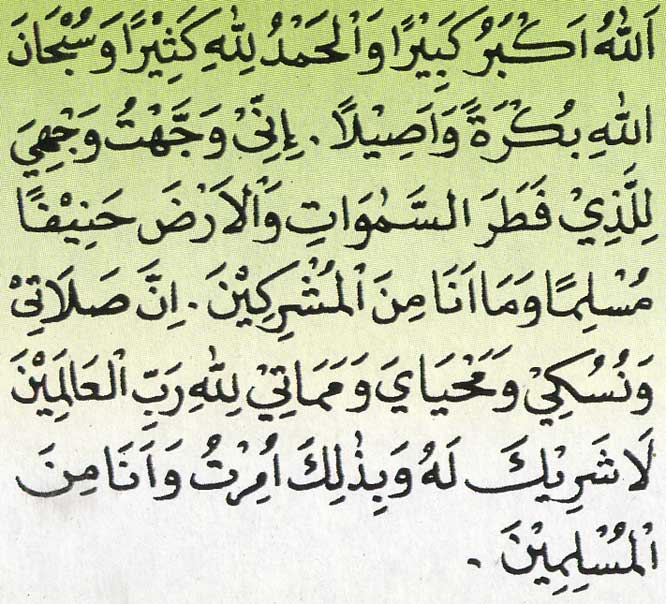 اَللّٰهُ اَكْبَرُ كَبِيْرًا وَالْحَمْدُ لِلّٰهِ كَثِيْرًا وَسُبْحَانَ
اللّٰهِ بُكْرَةً وَاَصِيْلًا . إِنِّيْ وَجَّهْتُ وَجْهِيَ
لِلَّذِيْ فَطَرَ السَّمٰوَاتِ وَالْاَرْضَ حَنِيْفًا
مُسْلِمًا وَمَا اَنَا مِنَ الْمُشْرِكِيْنَ . اِنَّ صَلَاتِيْ
وَنُسُكِيْ وَمَحْيَايَ وَمَمَاتِيْ لِلّٰهِ رَبِّ الْعَالَمِيْنَ
لَا شَرِيْكَ لَهُ وَبِذٰلِكَ اُمِرْتُ وَاَنَا مِنَ
الْمُسْلِمِيْنَ .